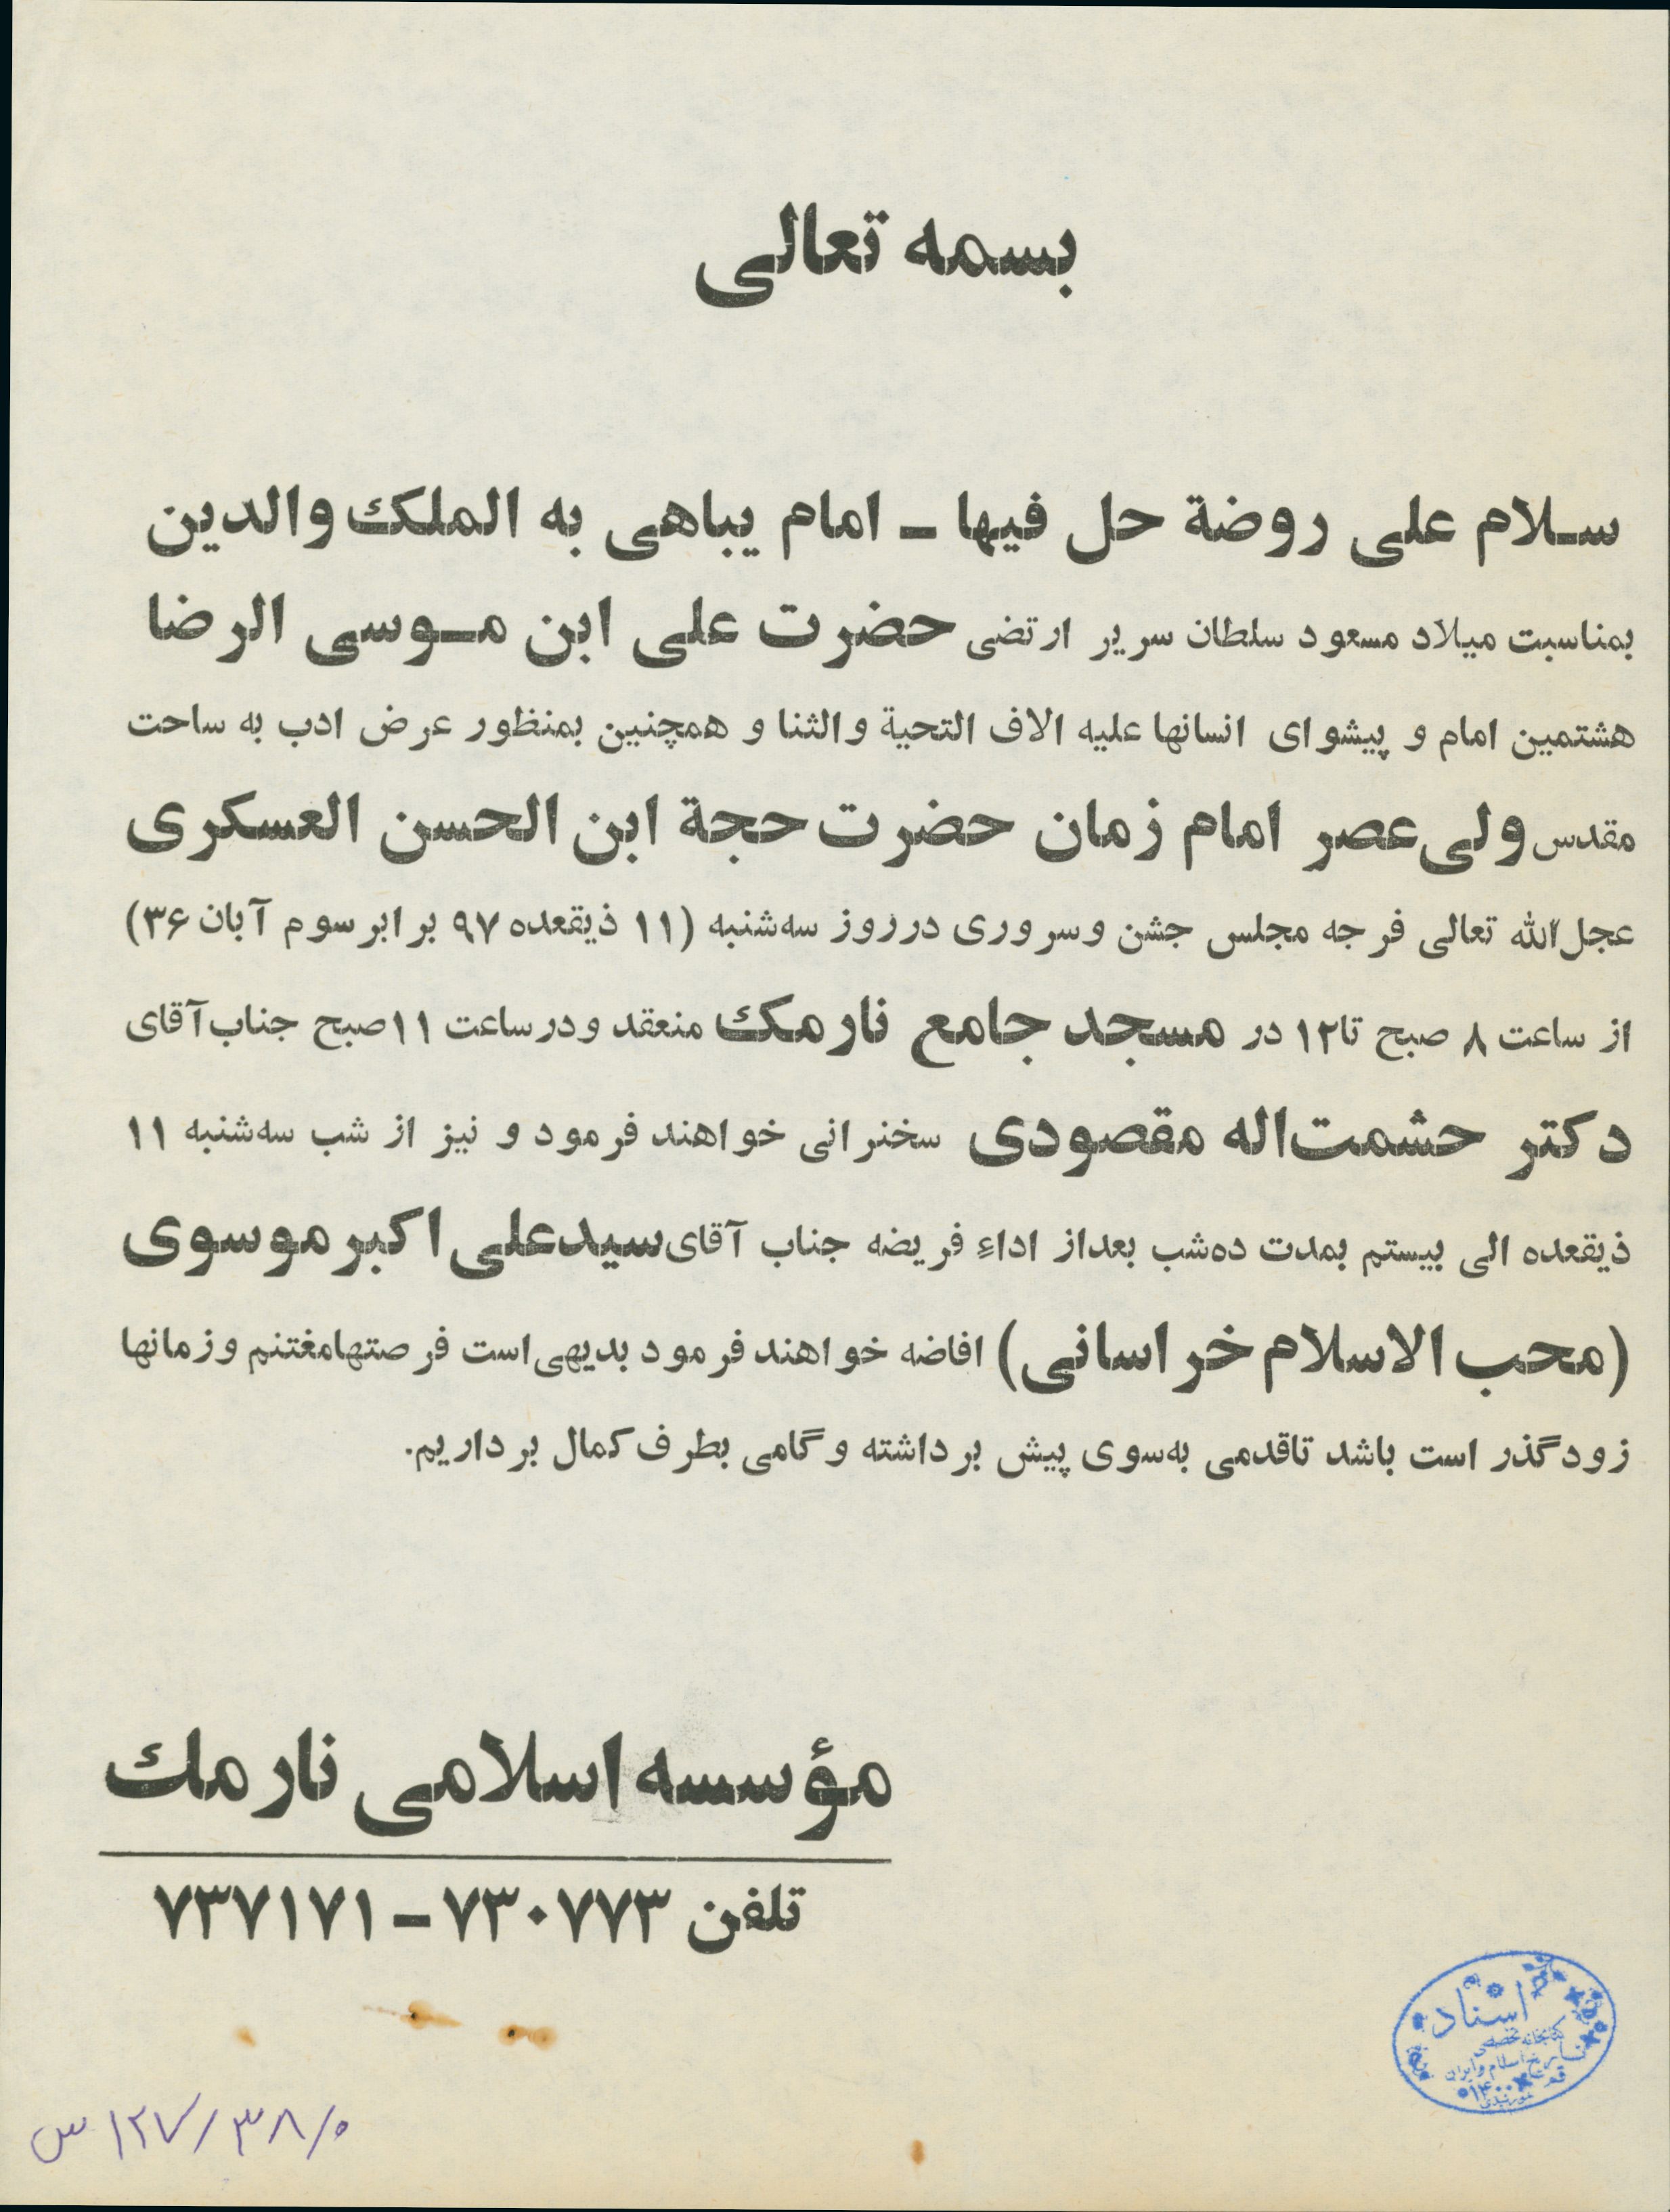 بسمه تعالی
سلام علی روضة حل فیها ـ امام یباهی به الملک والدین
بمناسبت میلاد مسعود سلطان سریر ارتضی حضرت علی ابن موسی الرضا
هشتمین امام و پیشوای انسانها علیه الاف التحیة والثنا و همچنین بمنظور عرض ادب به ساحت
مقدس ولی‌عصر امام زمان حضرت حجة ابن الحسن العسکری
عجل‌الله تعالی فرجه مجلس جشن وسروری درروز سه‌شنبه (۱۱ ذیقعده ۹۷ برابر سوم آبان ۳۶)
از ساعت ۸ صبح تا۱۲ در مسجد جامع نارمک منعقد ودرساعت ۱۱صبح جناب‌آقای
دکتر حشمت‌اله مقصودی سخنرانی خواهند فرمود و نیز از شب سه‌شنبه ۱۱
ذیقعده الی بیستم بمدت ده‌شب بعداز اداء فریضه جناب آقای سیدعلی‌اکبر موسوی
(محب الاسلام خراسانی) افاضه خواهند فرمود بدیهی‌است فرصتهامغتنم وزمانها
زودگذر است باشد تاقدمی به‌سوی پیش برداشته وگامی بطرف کمال برداریم.
مؤسسه اسلامی نارمك
تلفن ۷۳۰۷۷۳ ـ ۷۳۷۱۷۱
اسناد
کتابخانه تخصصی
تاریخ اسلام و ایران
قم
۱۲۷/۳۸/۰ س